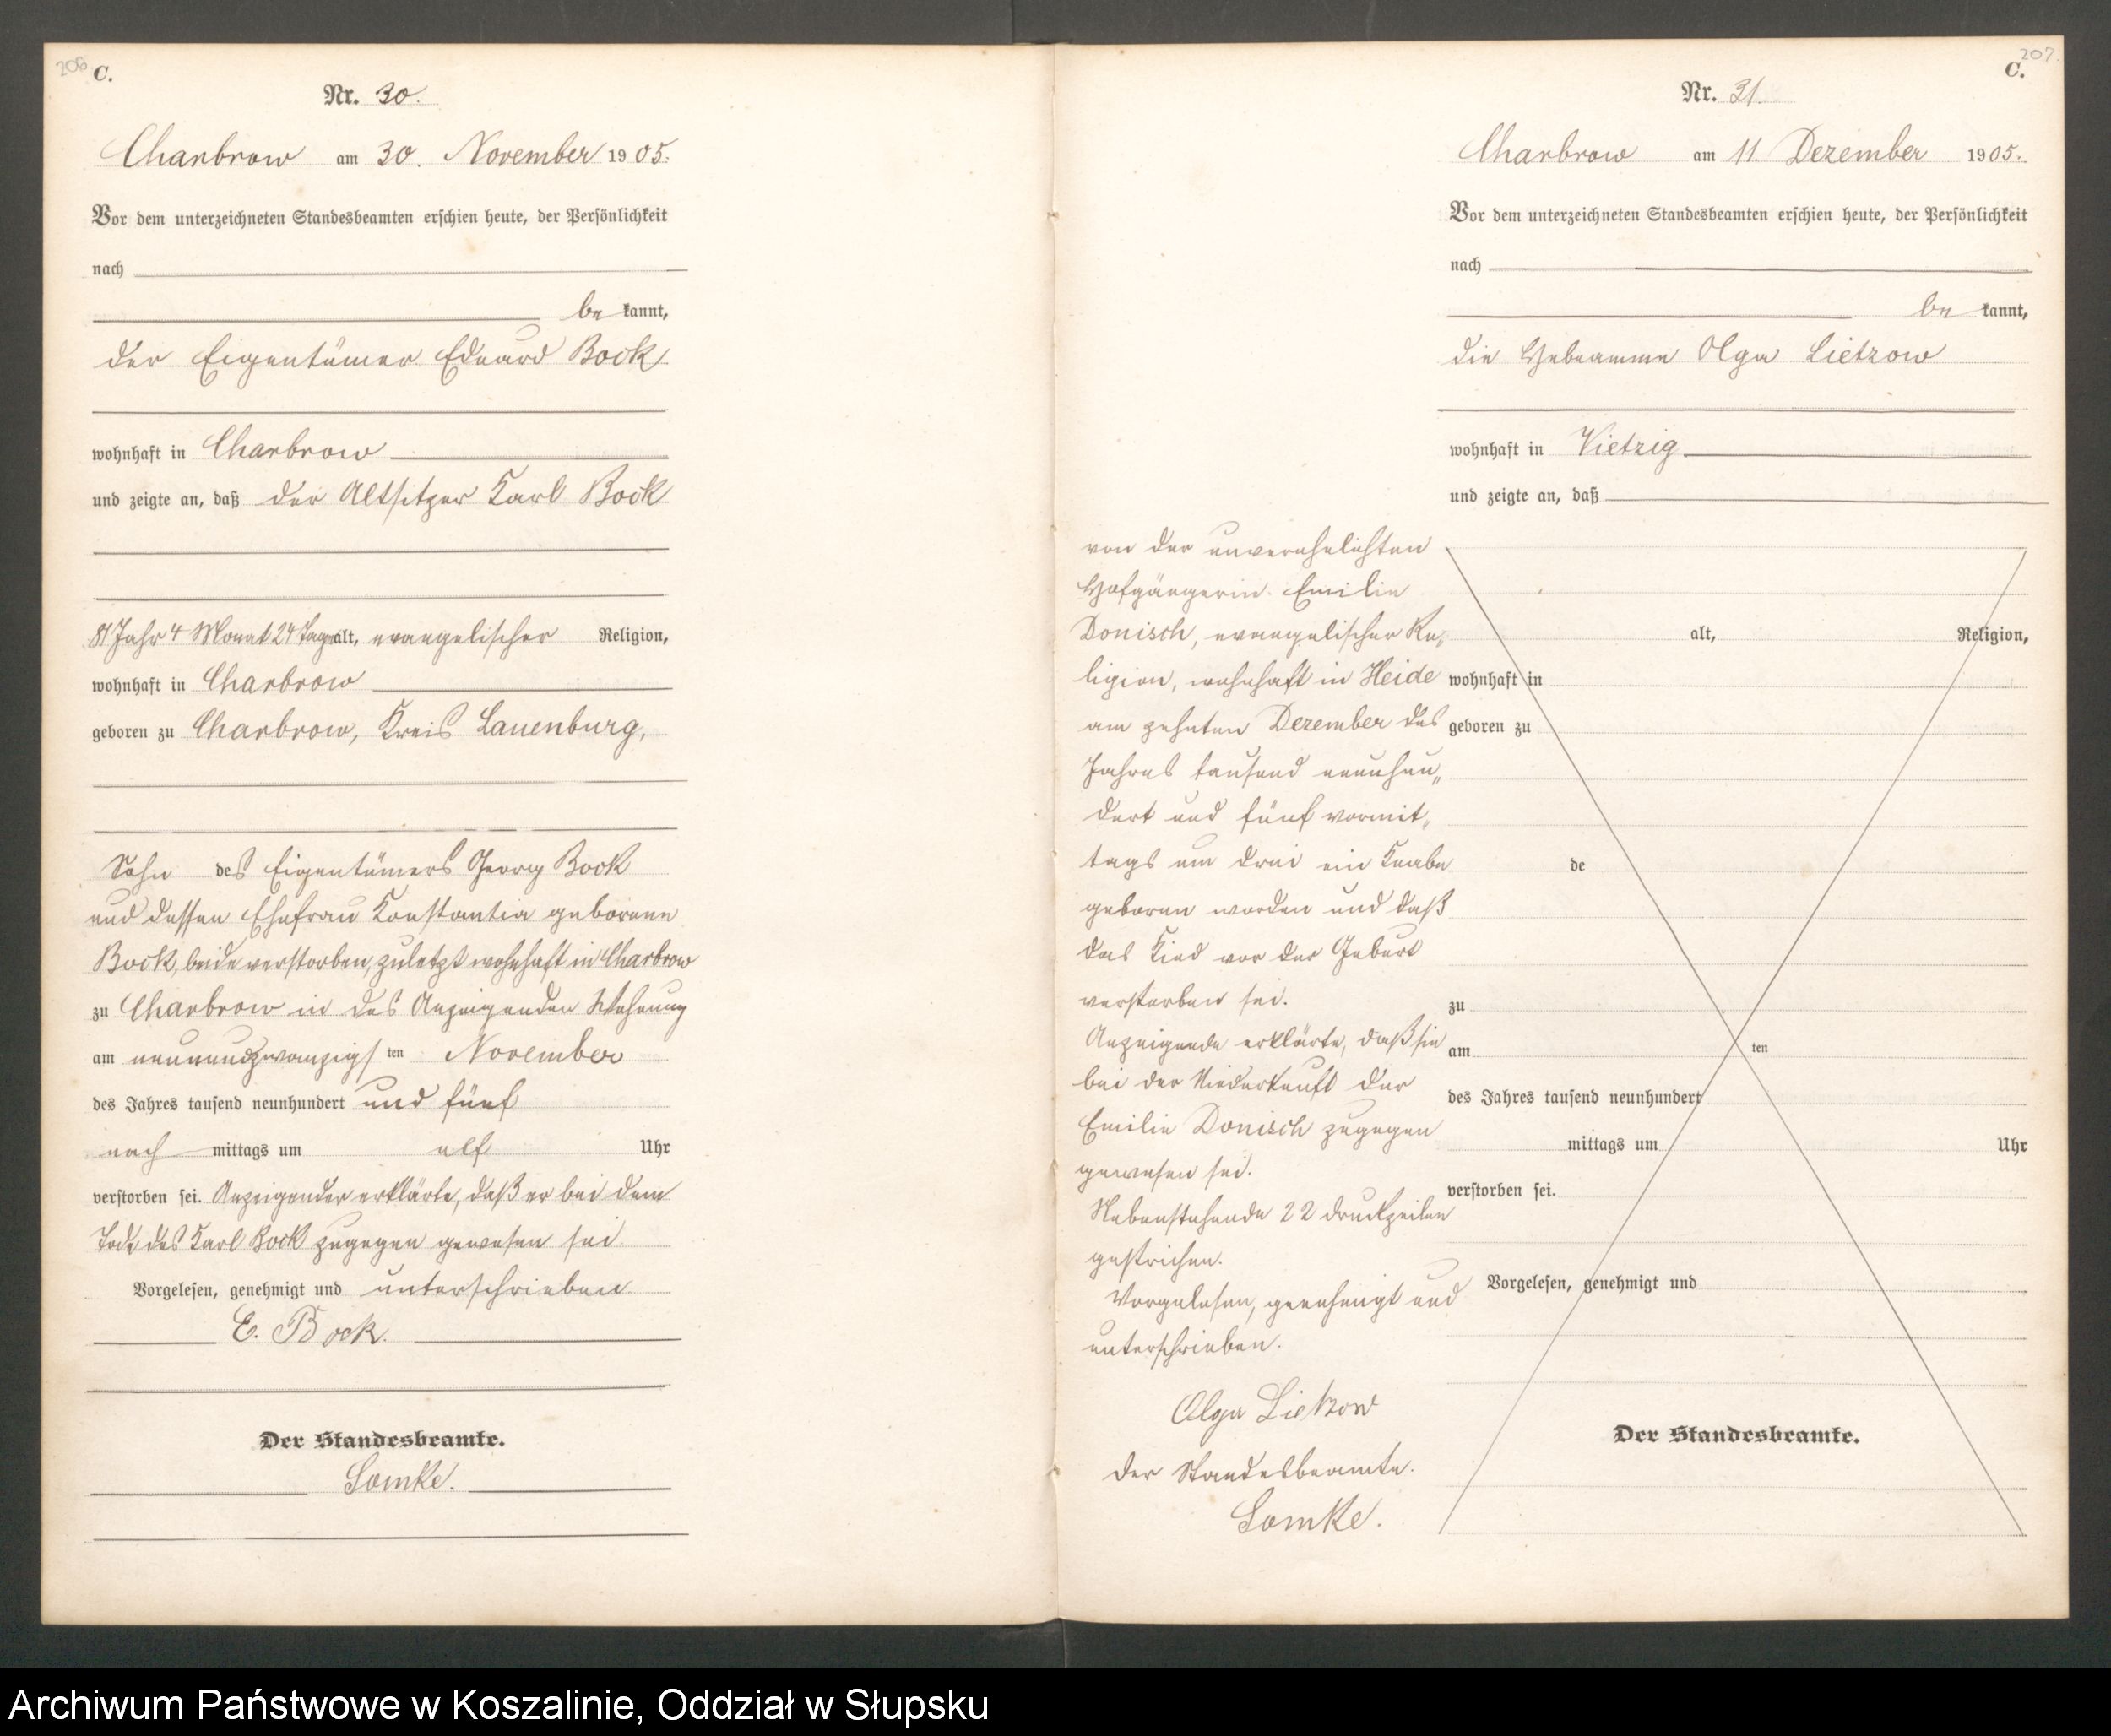 206.
C.
Nr. 30.
Charbrow am 30. November 1905.
Vor dem unterzeichneten Standesbeamten erschien heute, der Persönlichkeit
nach
be kannt,
der Eigentümer Eduard Bock
wohnhaft in Charbrow
und zeigte an, daß der Altsitzer Karl Bock
81 Jahr 4 Monat 24 Tage alt, evangelischer Religion,
wohnhaft in Charbrow
geboren zu Charbrow, Kreis Lauenburg,
Sohn des Eigentümers Georg Bock
und dessen Ehefrau Konstantia geborene
Bock, beide verstorben, zuletzt wohnhaft in Charbrow
zu Charbrow in des Anzeigenden Wohnung
am neunundzwanzigsten November
des Jahres tausend neunhundert und fünf
nach mittags um elf Uhr
verstorben sei. Anzeigender erklärte, daß er bei dem
Tode des Karl Bock zugegen gewesen sei
Vorgelesen, genehmigt und unterschrieben
E. Bock.
Der Standesbeamte.
Lomke.
207.
C.
Nr. 31.
Charbrow am 11. Dezember 1905.
Vor dem unterzeichneten Standesbeamten erschien heute, der Persönlichkeit
nach
be kannt,
die Hebeamme Olga Lietzow
wohnhaft in Vietzig
und zeigte an, daß
von der unverehelichten
Hofgängerin Emilie
Donisch, evangelischer Re„
ligion, wohnhaft in Heide
am zehnten Dezember des
Jahres tausend neunhun„
dert und fünf vormit„
tags um drei ein Knabe
geboren worden und daß
das Kind vor der Geburt
verstorben sei.
Anzeigende erklärte, daß sie
bei der Niederkunft der
Emilie Donisch zugegen
gewesen sei.
Nebenstehende 22 Druckzeilen
gestrichen.
Vorgelesen, genehmigt und
unterschrieben.
Olga Lietzow
Der Standesbeamte.
Lomke.
alt, Religion,
wohnhaft in
geboren zu
de
zu
am ten
des Jahres tausend neunhundert
mittags um Uhr
verstorben sei.
Vorgelesen, genehmigt und
Der Standesbeamte.
Archiwum Państwowe w Koszalinie, Oddział w Słupsku